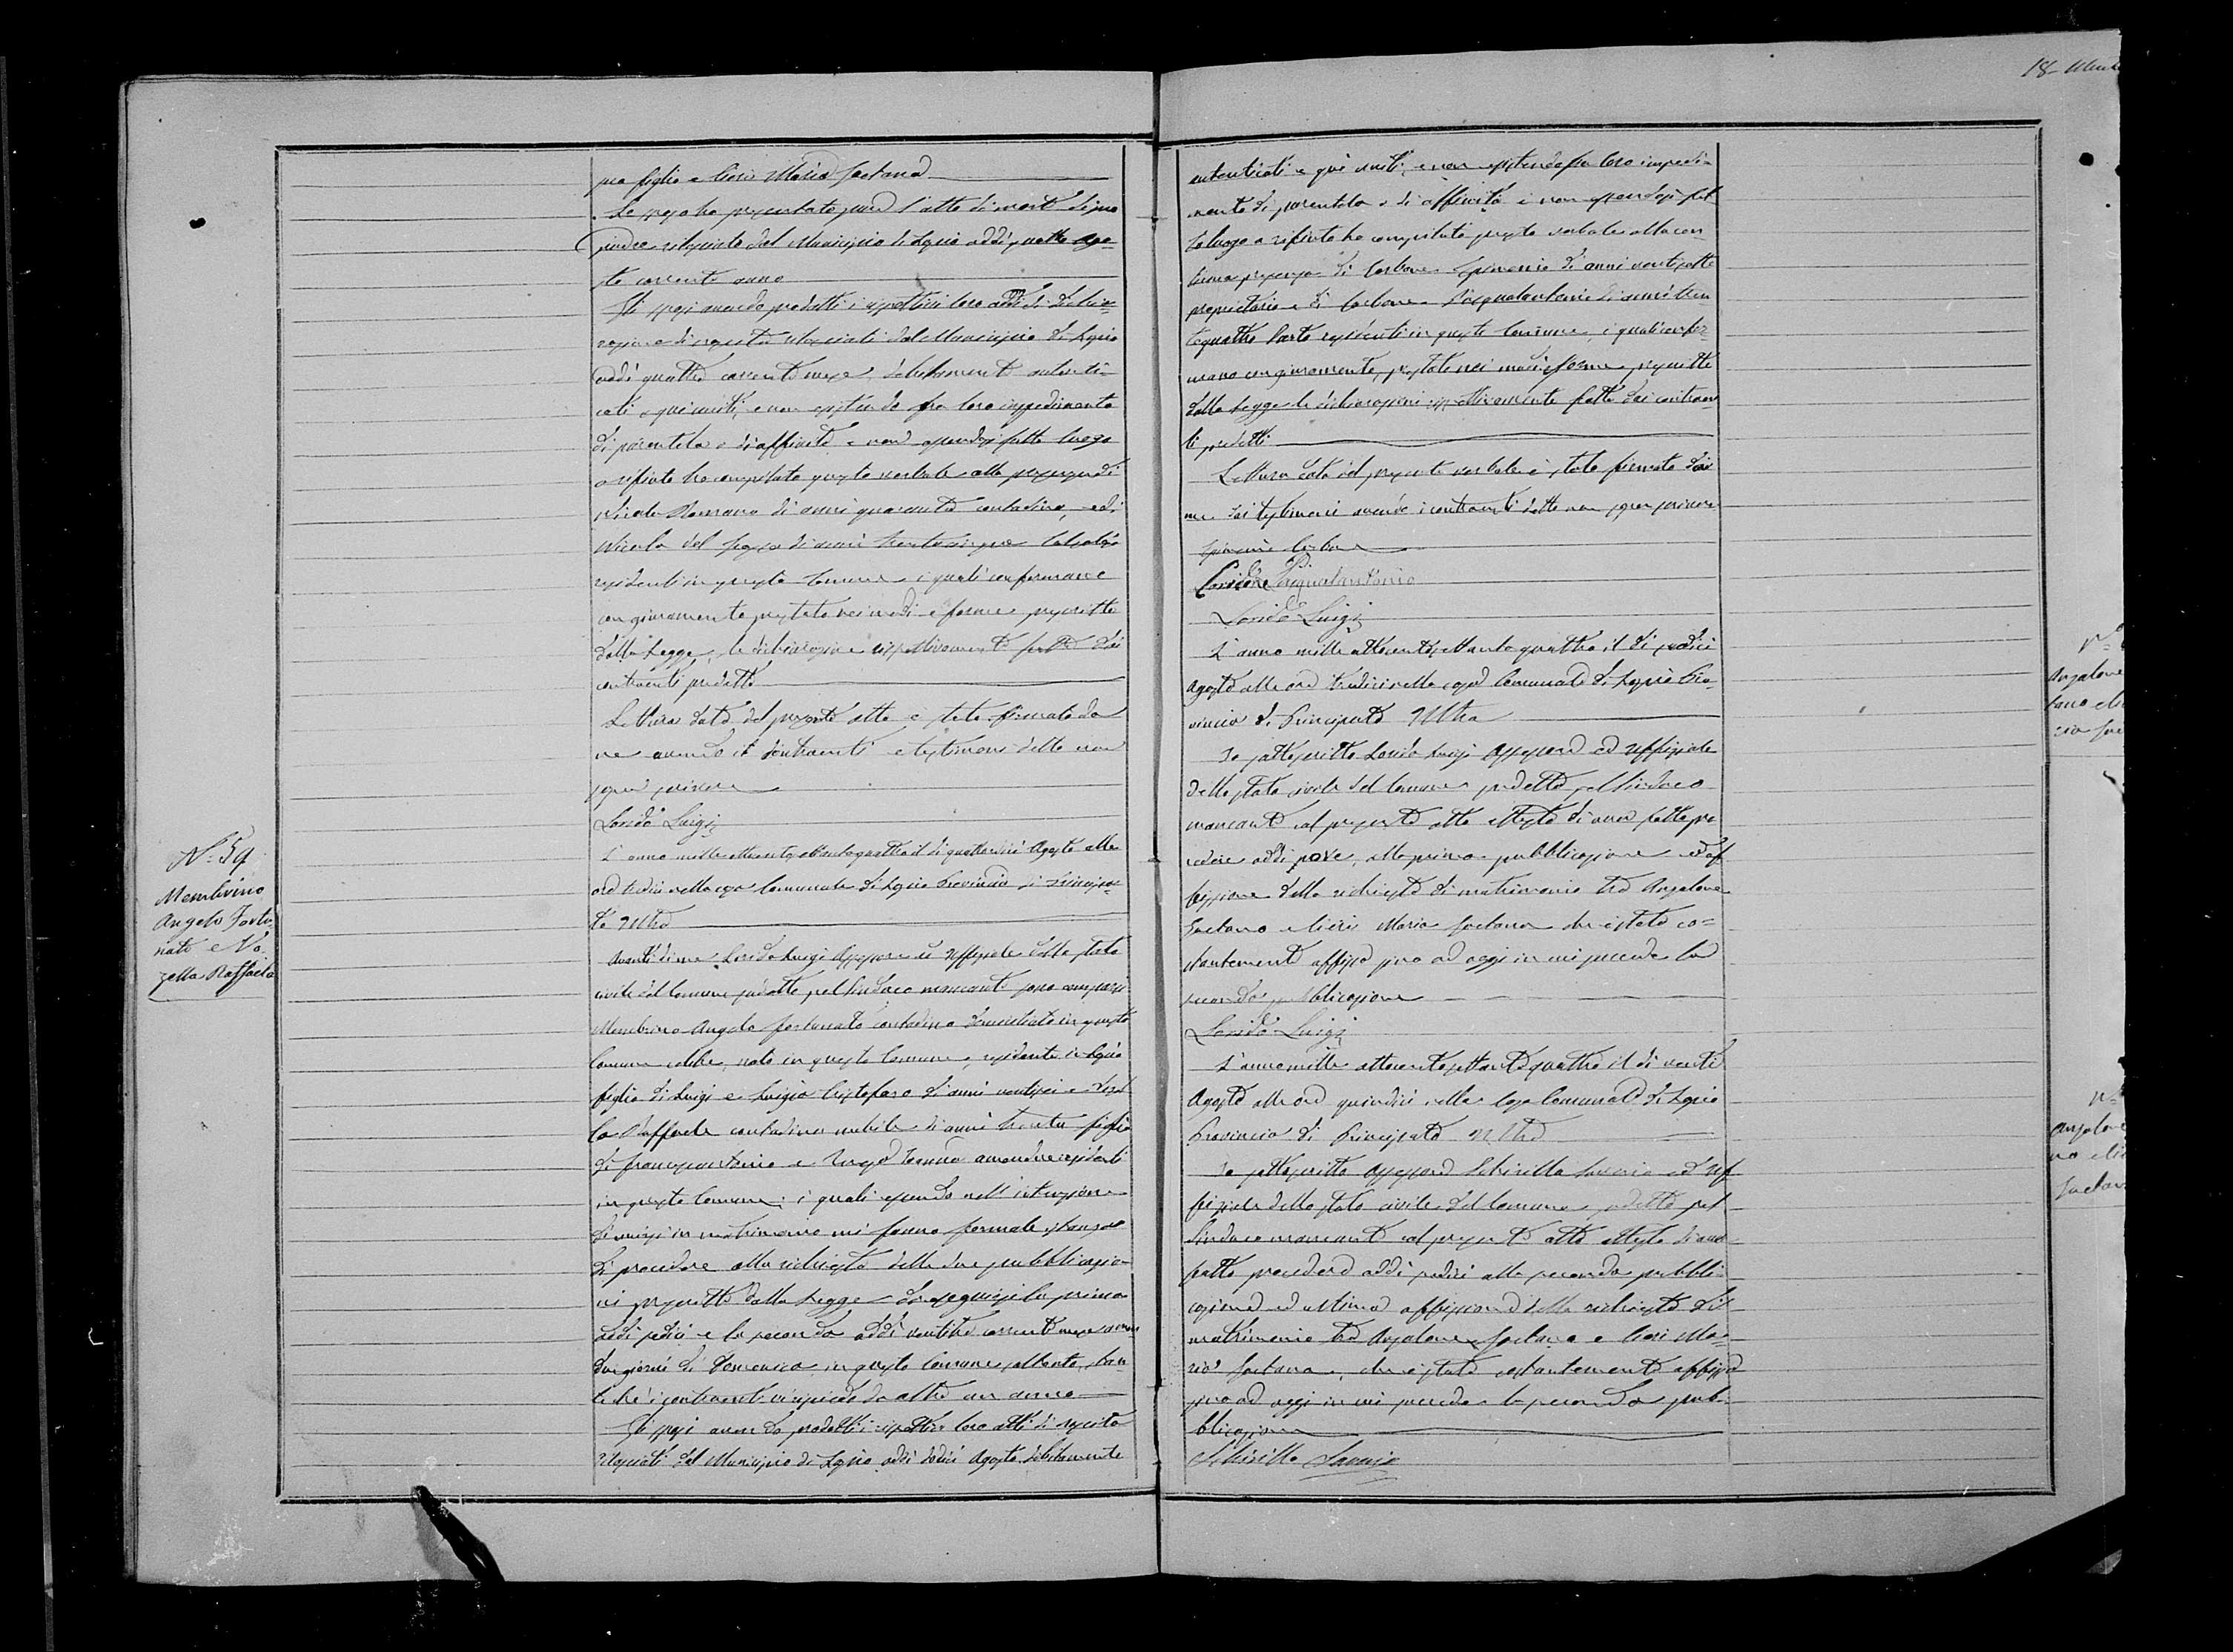 18-
sua figlia Cieri Maria Gaetana
Lo sposo ha presentato pure l'atto di morte di suo
padre rilasciato dal Municipio di addì quattro Ago-
sto corrente anno
Gli sposi avendo prodotti i rispettivi loro atti di
di nascita rilasciati dal Municipio di
addì quattro corrente mese, debitamente autenti-
cati e qui uniti, e non esistendo fra loro impedimento
di parentela o di affinità e non essendosi fatto luogo
a rifiuto ho compilato questo verbale alla presenza di
Nicola Romano di anni quaranta contadino, e di
Nicola del di anni trentacinque calzolajo
residenti in questo Comune i quali confermano
con giuramento prestato nei modi e forme prescritte
dalla Legge, le dichiarazioni rispettivamente fatte dai
contraenti predetti
Lettura data del presente atto è stato firmato da
me avendo i contraenti e testimoni detto non
saper scrivere
Lorido Luigi
N. 59
Membrino
Angelo Fortu-
nato e No-
zella Raffaela
L'anno mille ottocentosettantaquattro il di quattordici Agosto alle
ore tredici nella casa Comunale di Provincia di Principa-
to Ultra
Avanti di me Lorido Luigi Assessore ed Uffiziale dello stato
civile del Comune suddetto pel Sindaco mancante sono comparsi
Membrino Angelo Fortunato contadino domiciliato in questo
Comune celibe, nato in questo Comune, residente in
figlio di Luigi e Luigia Cristofaro di anni ventisei e
la Raffaela contadina nubile di anni trenta figlia
di Francesantonio e amendue residenti
in questo Comune; i quali essendo nell'intenzione
di unirsi in matrimonio mi fanno formale istanza
di procedere alla richiesta delle due pubblicazio-
ni prescritte dalla Legge da eseguirsi la prima
addì sedici e la seconda addì ventitre corrente mese
due giorni di Domenica in questo Comune soltanto, stan-
te che i contraenti vi risiedono da oltre un anno
Gli sposi avendo prodotti i rispettivi loro atti di nascita
rilasciati dal Municipio di addì dodici Agosto debitamente
autenticati e qui uniti, e non esistendo fra loro impedi-
mento di parentela o di affinità e non essendosi fat-
to luogo a rifiuto ho compilato questo verbale alla con-
tinua presenza di Carbone Epimenio di anni ventisette
proprietario e di Carbone Pasqualantonio di anni tren-
taquattro Sarto residenti in questo Comune, i quali confer-
mano con giuramento, prestato nei modi e forme prescritte
dalla Legge le dichiarazioni rispettivamente fatte dai contraen-
ti predetti
Lettura data del presente verbale è stato firmato da
me dai testimoni avendo i contraenti detto non saper scrivere
Epimenio Carbone
Pasqualantonio
Lorido Luigi
L'anno mille ottocentosettantaquattro il di sedici
Agosto alle ore tredici nella casa Comunale di Pro-
vincia di Principato Ultra
Io sottoscritto Lorido Luigi Assessore ed Uffiziale
dello stato civile del Comune suddetto pel Sindaco
mancante col presente atto attesto di aver fatto pro-
cedere addì nove, alla prima pubblicazione ed af-
fissione della richiesta di matrimonio tra Angelone
Gaetano e Cieri Maria Gaetana che è stata co-
stantemente affissa sino ad oggi in cui succede la
seconda pubblicazione
Lorido Luigi
L'anno mille ottocentosettantaquattro il di venti
Agosto alle ore quindici nella Casa Comunale di
Provincia di Principato Ultra
Io sottoscritto Assessore Schirillo Saverio ed Uf-
fiziale dello stato civile del Comune suddetto pel
Sindaco mancante col presente atto attesto di aver
fatto procedere addì sedici alla seconda pubbli-
cazione ed ultima affissione della richiesta di
matrimonio tra Angelone Gaetano e Cieri Ma-
ria Gaetana, che è stata costantemente affissa
sino ad oggi in cui succede la seconda pub-
blicazione
Schirillo Saverio